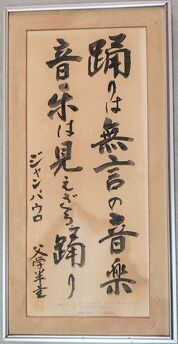 踊りは無言の音楽
音楽は見えざる踊り
ジャンパウロ